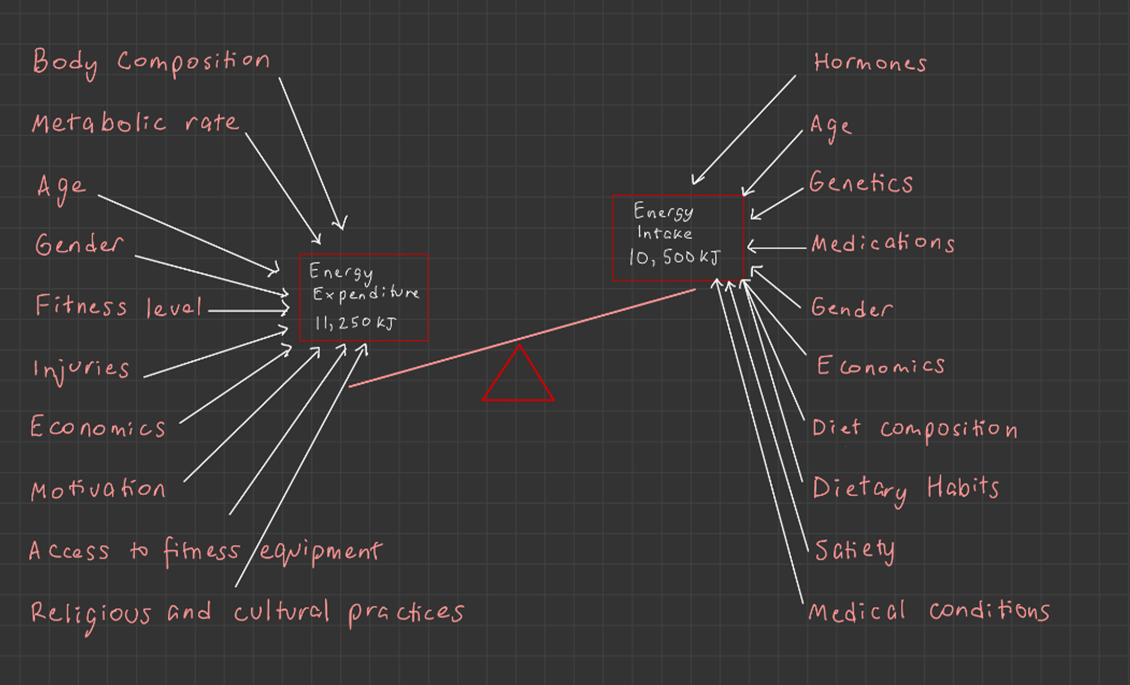 Body Composition
Metabolic rate
Age
Gender
Fitness level
Injuries
Economics
Motivation
Access to fitness equipment
Religious and cultural practices
Energy
Expenditure
11,250 kJ
Energy
Intake
10,500 kJ
Hormones
Age
Genetics
Medications
Gender
Economics
Diet composition
Dietary Habits
Satiety
Medical conditions